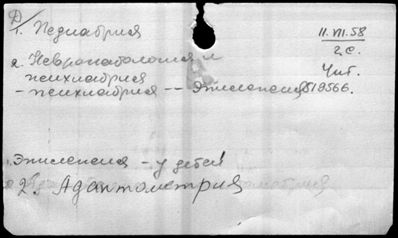 Д/
1. Педиатрия
11.VII.58
2 с.
2. Невропатология и
психиатрия
Чит.
- психиатрия -- Эпилепсия 519566.
1. Эпилепсия - у детей
2. Адаптометрия